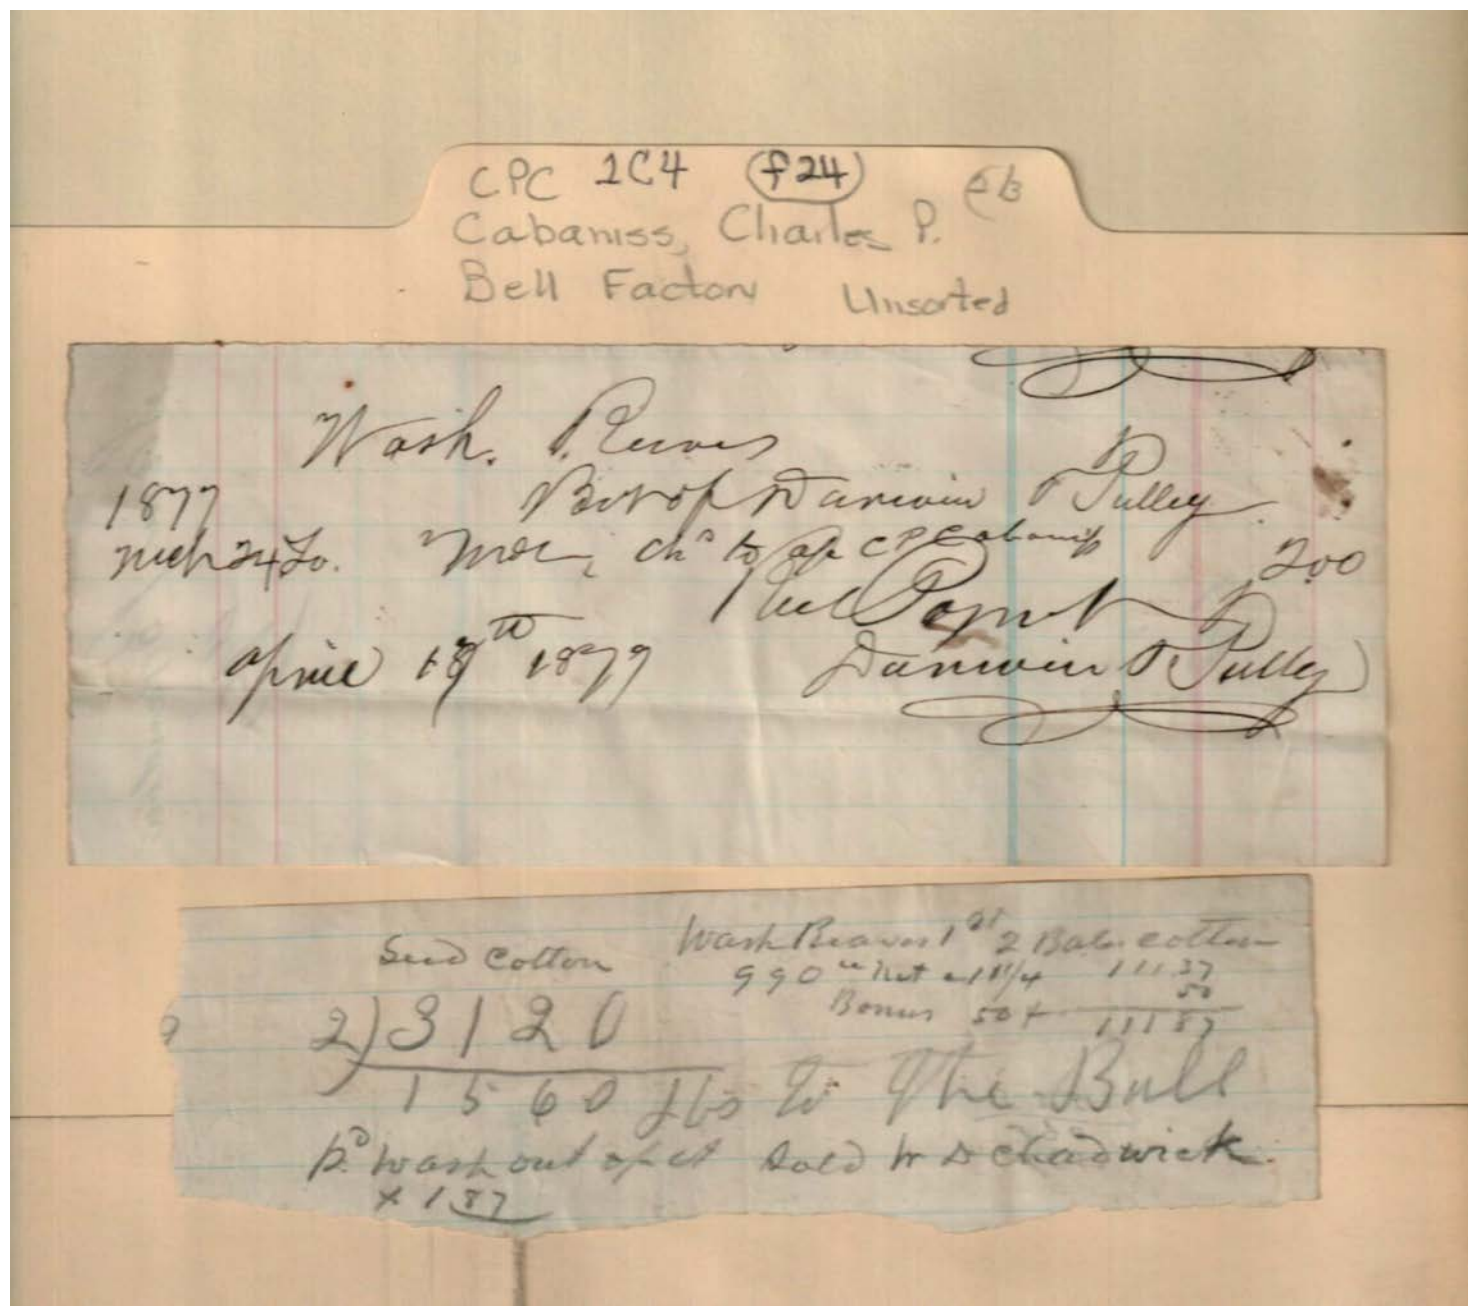 CPC 1C4 f24
Cabaniss, Charles P.
Bell Factory Unsorted
Wash. Reeves
1877 Bot of Darwin & Pulley
Mch 24 To. Mdse, chd to a/c C P Cabaniss 200
Recd Paymt
April 19th 1879 Darwin & Pulley
Seed Cotton Wash Reaves 1st 2 Bales cotton
990 net 11 1/4 111 37
Bonus 50 50
2)3120 111 87
1560 lbs to The Ball
pd Wash out of it Sold W D Chadwick
x 1 87